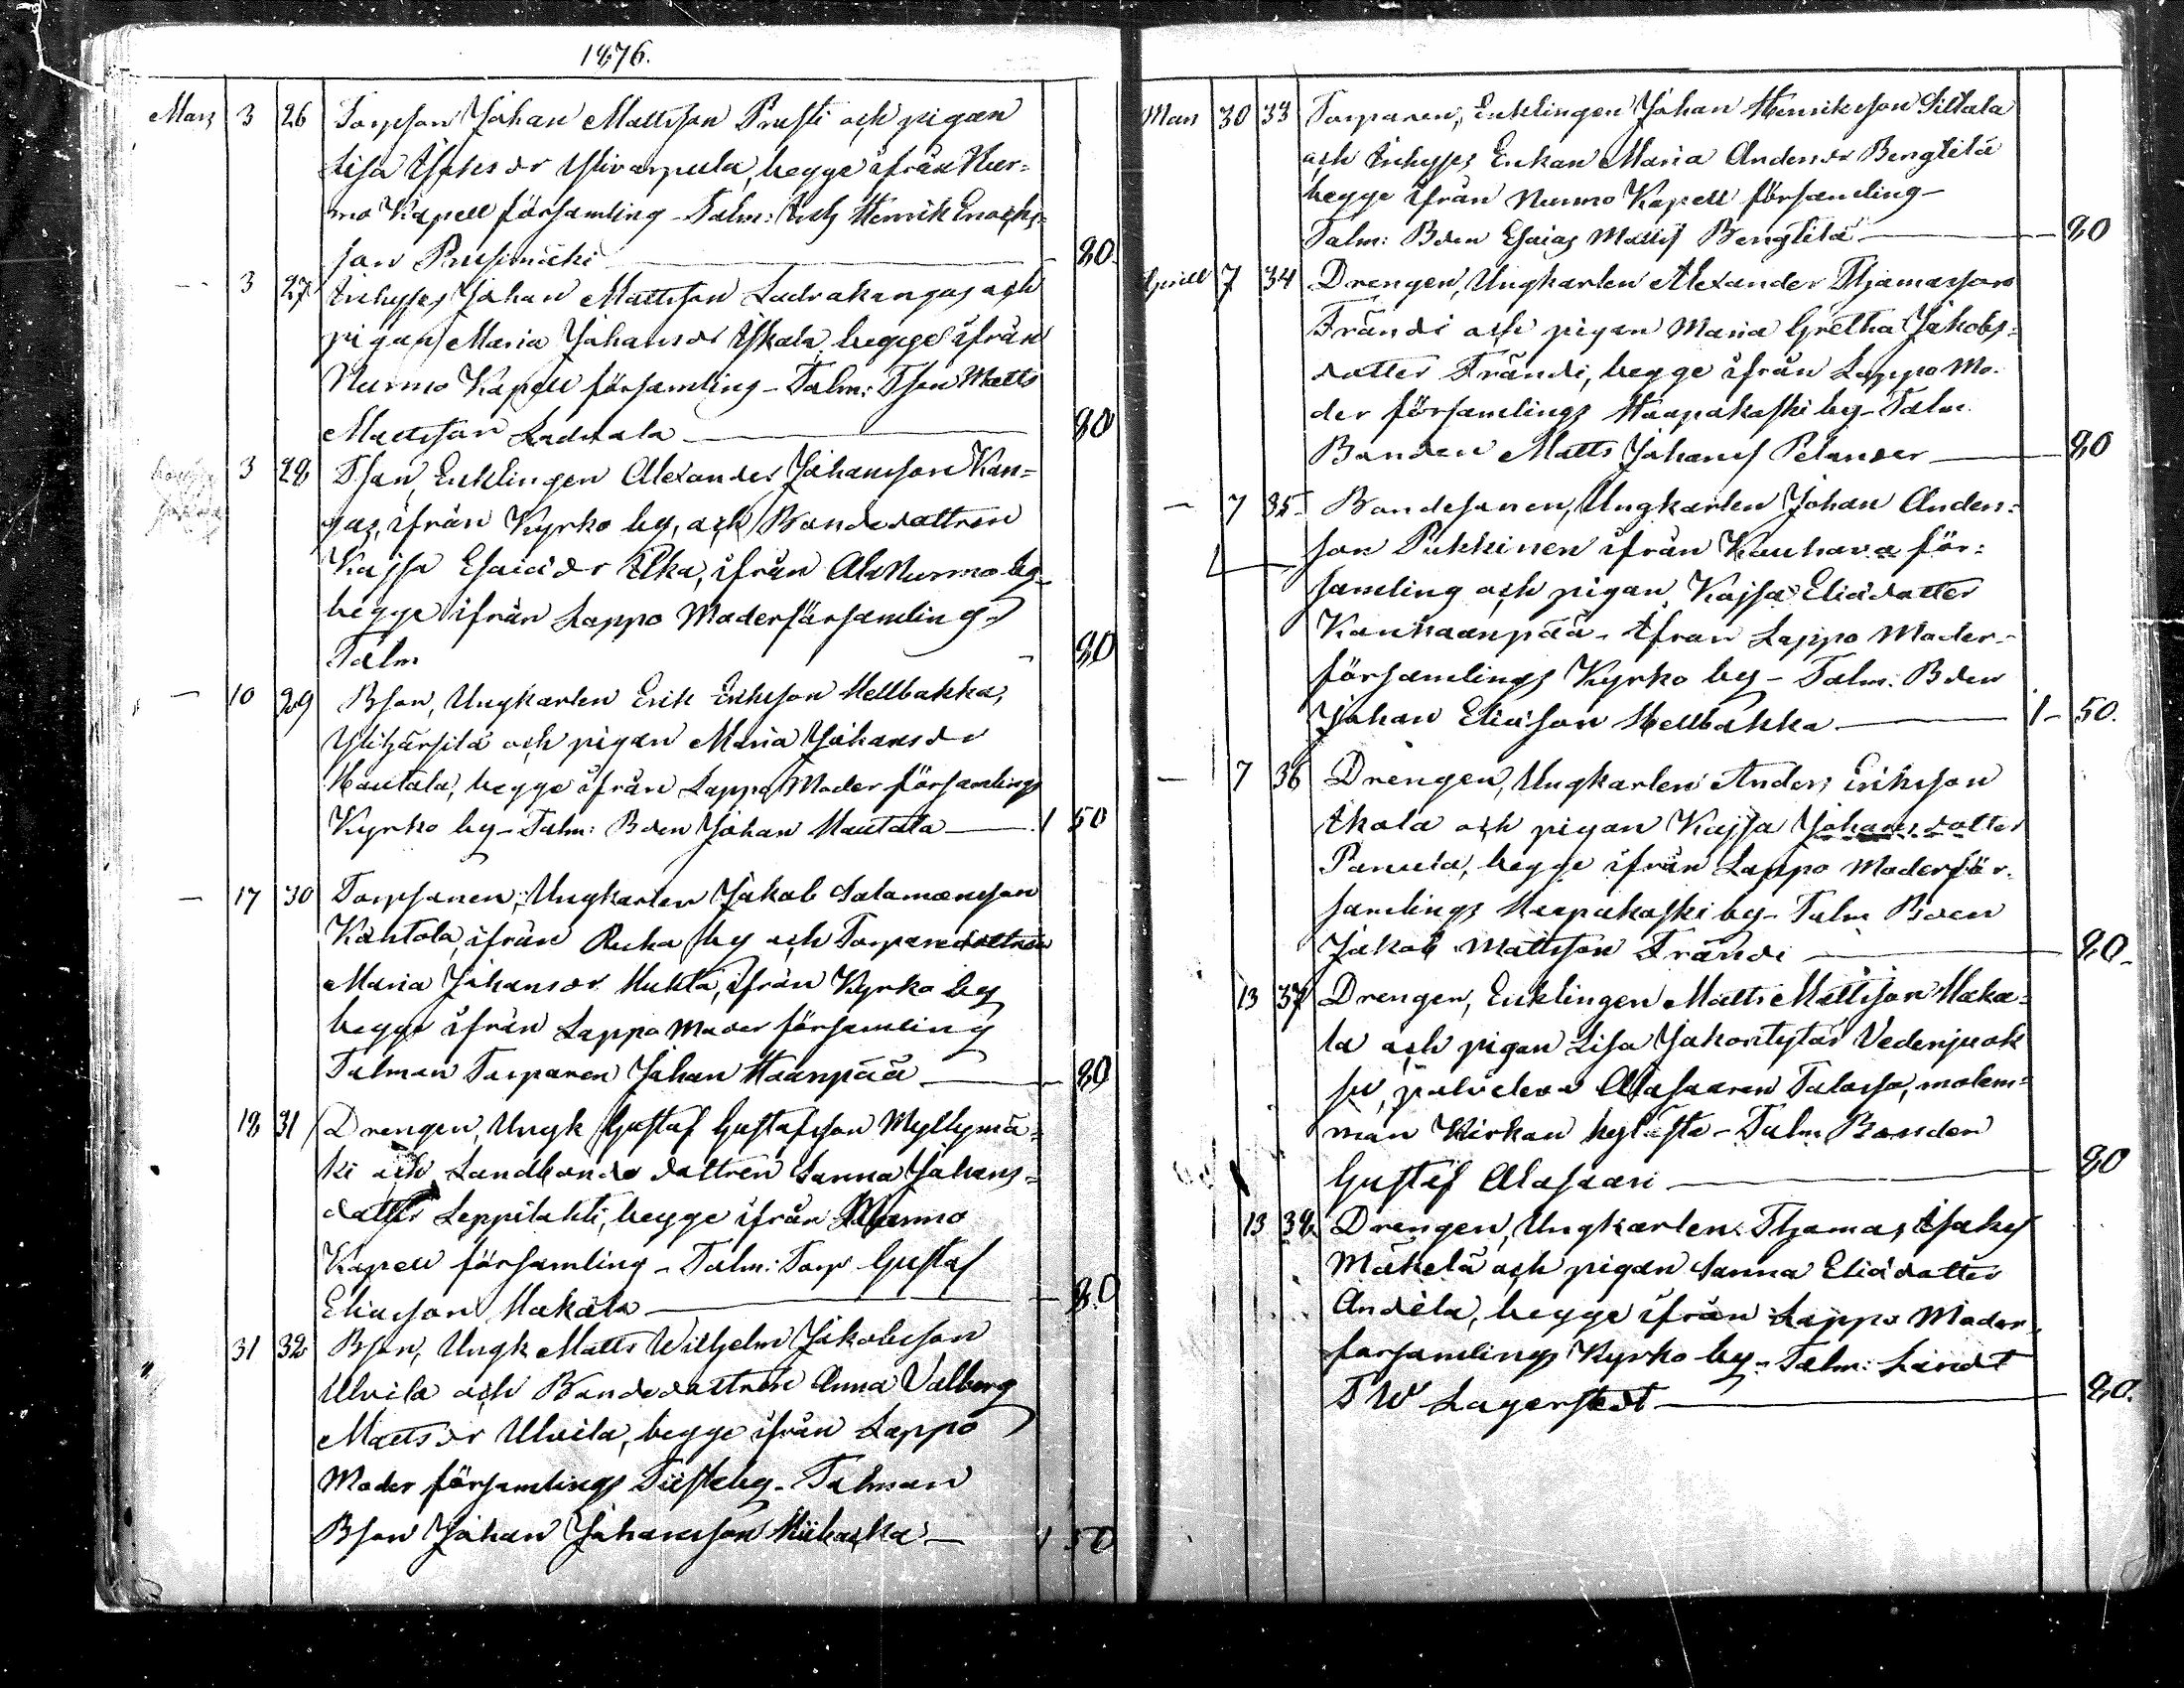 1876.
Mars 3 26 Torpson Johan Mattsson Prusti och pigan
Lisa Isaksdr Ylivarpula, begge ifrån Nur=
mo Kapell församling - Talm: Inh Henrik Enochs=
son Prusinäki 80
3 27 Inhyses Johan Mattsson Ladvakangas och
pigan Maria Johansdr Iskala begge ifrån
Nurmo Kapell församling - Talm: Tson Matts
Mattsson Ladvala 80
3 28 Tson, Enklingen Alexander Johansson Kan=
gas, ifrån Kyrko by, och Bondedottren
Kajsa Esaiädr Ilka, ifrån Ala Nurmo by
begge ifrån Lappo Moderförsamling
Talm 80
— 10 29 Bson, Ungkarlen Erik Eriksson Hellbakka,
och pigan Maria Johansdr
Hautala, begge ifrån Lappo Moder församlings
Kyrko by - Talm: Bden Johan Hautala 1 50
— 17 30 Torpsonen, Ungkarlen Jakob Salamonsson
Kantola, ifrån Ruha by och Torparedottren
Maria Johansdr Huhta, ifrån Kyrko by
begge ifrån Lappo Moder församling
Talman Torparen Johan Haanpää 80
18 31 Drengen, Ungk Gustaf Gustafsson Myllymä=
ki och Landbonde dottren Sanna Johans=
dotter Leppilahti, begge ifrån Nurmo
Kapell församling - Talm: Torp Gustaf
Eliasson Makala 80
31 32 Bson, Ungk Matts Wilhelm Jakobsson
Ulvila och Bondedottren Anna Valborg
Mattsdr Ulvila, begge ifrån Lappo
Moder församlings Tiisteby - Talman
Bson Johan Johansson 1 50
Mars 30 33 Torparen, Enklingen Johan Henriksson Siltala
och Inhyses Enkan Maria Andersdr Bengtilä
begge ifrån Nurmo Kapell församling -
Talm: Bden Esaias Matts Bengtilä 80
April 7 34 Drengen, Ungkarlen Alexander Thomasson
Frändi och pigan Maria Gretha Jakobs=
dotter Frändi, begge ifrån Lappo Mo=
der församlings Haapakoski by - Talm
Bonden Matts Johans Pelander 80
— 7 35 Bondesonen, Ungkarlen Johan Anders=
son Pukkinen ifrån Kauhava för=
samling och pigan Kajsa Eliädotter
Kankaanpää - ifrån Lappo Moder=
församlings Kyrko by - Talm. Bden
Johan Eliäson Hellbakka 1 - 50.
— 7 36 Drengen, Ungkarlen Anders Eriksson
Ikola och pigan Kajsa Johansdotter
Panula, begge ifrån Lappo Moderför=
samlings Haapakoski by - Talm Bden
Jakob Mattsson Frändi 80
13 37 Drengen, Enklingen Matts Mattsson Haka=
la och pigan Lisa Jakontytär Vedenjuok
su, palveleva Alasaaren Talossa, molem=
man Kirkon kylästä - Talm Bonden
Gustaf Alasaari 80
13 38 Drengen, Ungkarlen Thomas Isaks
Mäkelä och pigan Sanna Eliädotter
Andila, begge ifrån Lappo Moder
församlings Kyrko by - Talm:
T W Lagerstedt 80.